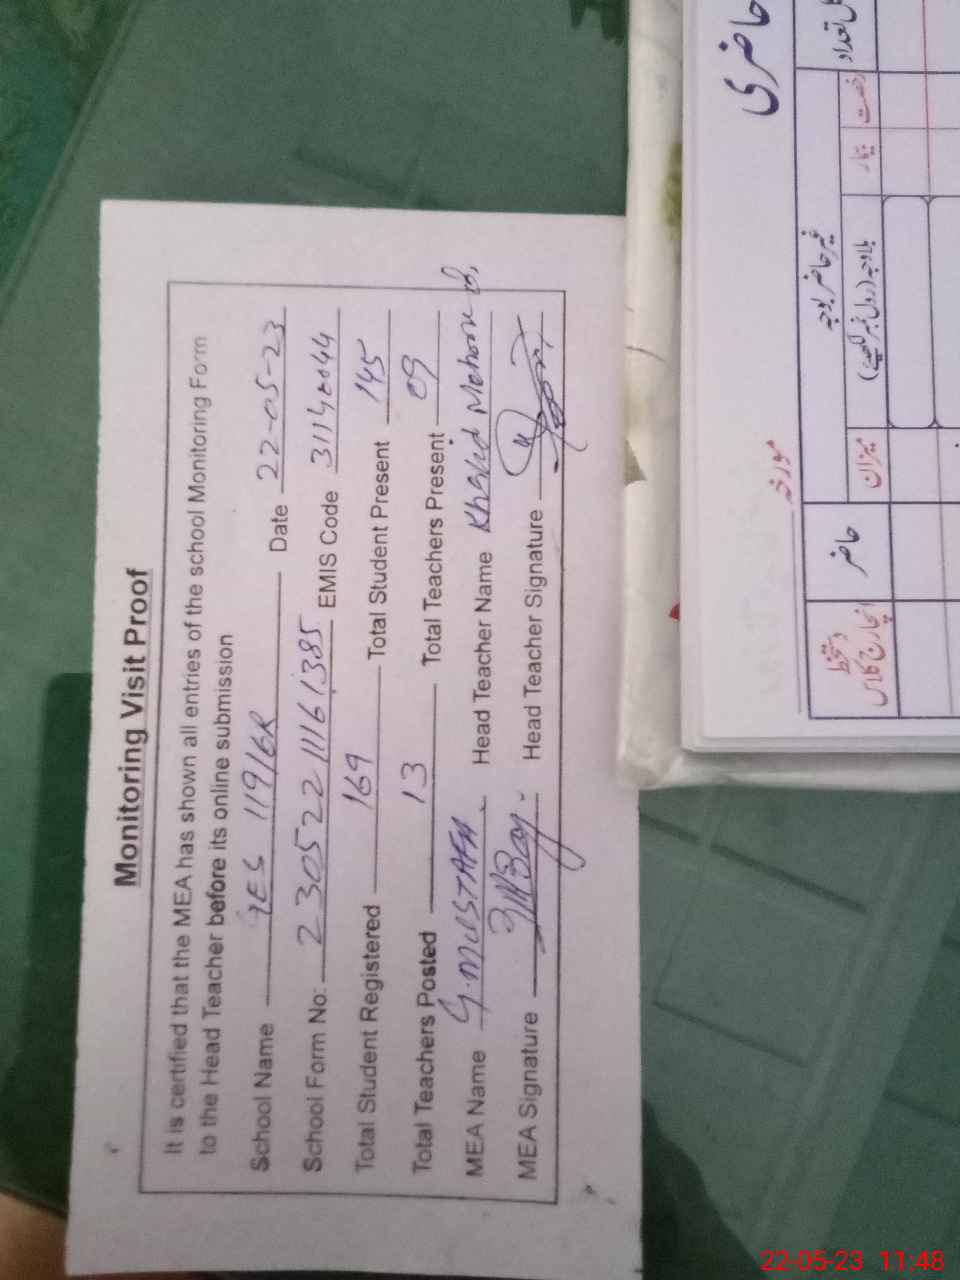 Monitoring Visit Proof
It is certified that the MEA has shown all entries of the school Monitoring Form
to the Head Teacher before its online submission
School Name GES 119/6R Date 22-05-23
School Form No: 23052211161385 EMIS Code
Total Student Registered 169 Total Student Present 145
Total Teachers Posted 13 Total Teachers Present 09
MEA Name G. MUSTAFA Head Teacher Name Khalid
MEA Signature Head Teacher Signature
حاضری
مورخہ
دستخط انچارج کلاس حاضر غیر حاضر بلاوجہ
میزان بلاوجہ (رول نمبر لکھیے) بیمار رخصت
22-05-23 11:48